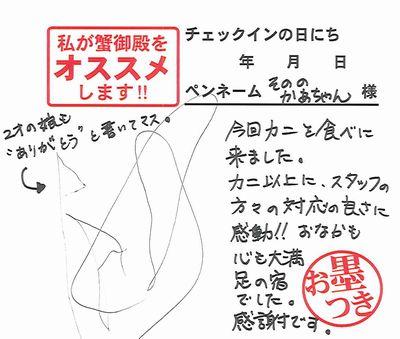 私が蟹御殿を
オススメ
します!!
チェックインの日にち
年 月 日
ペンネーム そのの
かあちゃん 様
2才の娘も
"ありがとう"と書いてマス。
今回カニを食べに
来ました。
カニ以上に、スタッフの
方々の対応の良さに
感動!! おなかも
心も大満
足の宿
でした。
感謝です。
お墨
つき